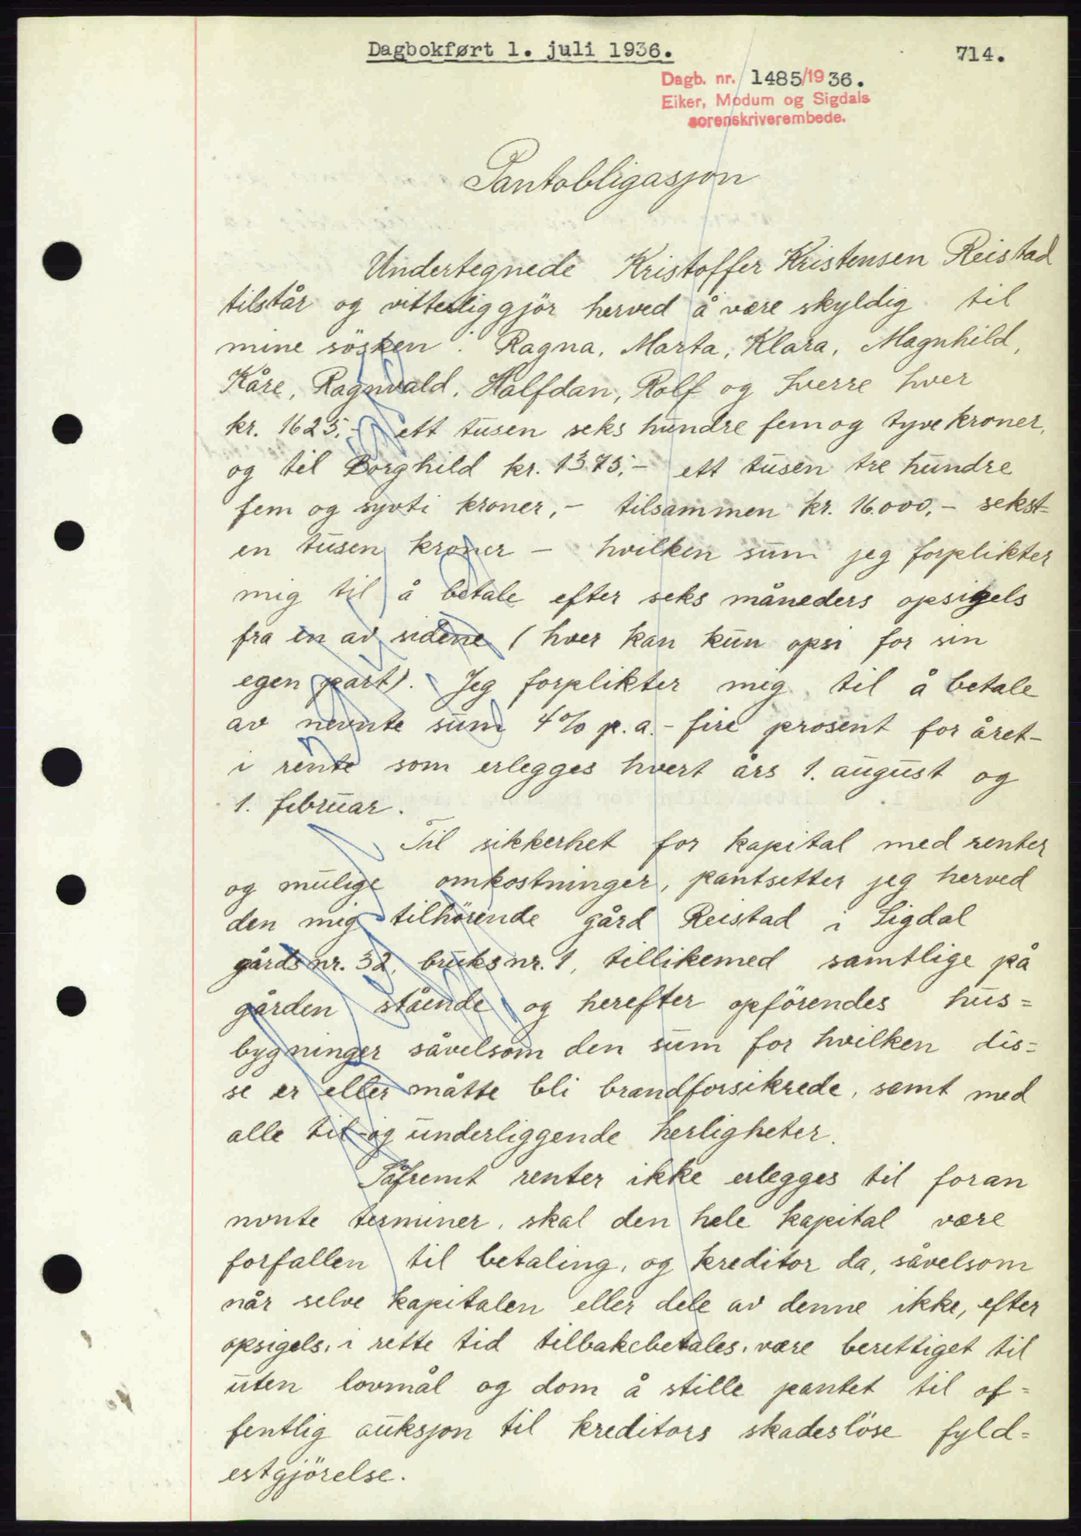 Dagbokført 1. juli 1936.
714.
Dagb. nr. 1485/1936.
Eiker, Modum og Sigdals
sorenskriverembede.
Pantobligasjon
Undertegnede Kristoffer Kristensen Reistad
tilstår og vitterliggjör herved å være skyldig til
mine sösken: Ragna, Marta, Klara, Magnhild,
Kåre, Ragnvald, Halfdan, Rolf og Sverre hver
kr. 1625,- ett tusen seks hundre fem og tyve kroner,
og til Borghild kr. 1375,- ett tusen tre hundre
fem og sytti kroner,- tilsammen kr. 16.000,- sekst=
en tusen kroner - hvilken sum jeg forplikter
mig til å betale efter seks måneders opsigels
fra en av sidene (hver kan kun opsi for sin
egen part). Jeg forplikter mig til å betale
av nevnte sum 4% p.a. - fire prosent for året -
i rente som erlegges hvert års 1. august og
1. februar.
Til sikkerhet for kapital med renter
og mulige omkostninger, pantsetter jeg herved
den mig tilhörende gård Reistad i Sigdal
gårdsnr. 32, bruksnr. 1, tillikemed samtlige på
gården stående og herefter opförendes hus=
bygninger såvelsom den sum for hvilken dis=
se er eller måtte bli brandforsikrede, samt med
alle til og underliggende herligheter.
Såfremt renter ikke erlegges til foran
nvnte terminer, skal den hele kapital være
forfallen til betaling, og kreditor da, såvelsom
når selve kapitalen eller dele av denne ikke, efter
opsigels, i rette tid tilbakebetales, være berettiget til
uten lovmål og dom å stille pantet til of=
fentlig auksjon til kreditors skadeslöse fyld=
estgjörelse.